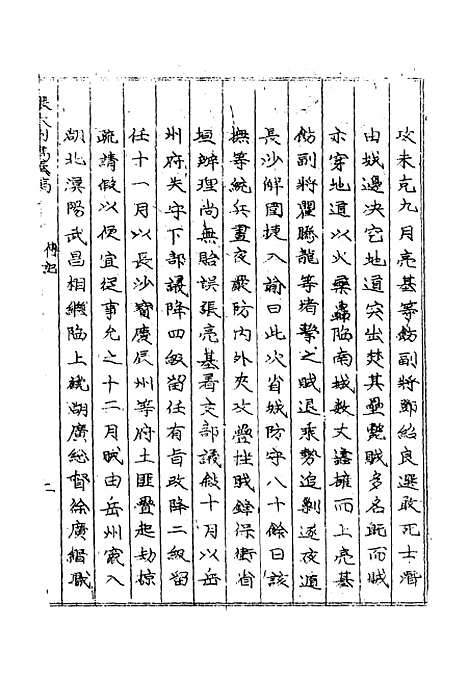 攻未克九月亮基等飭副將鄧紹良選敢死士潛
由城邊決它地道突出焚其壘斃賊多名旣而賊
亦穿地道以火藥轟陷南城數丈蠭擁而上亮基
飭副將瞿騰龍等堵擊之賊退乘勢追剿逐夜遁
長沙解圍捷入諭曰此次省城防守八十餘日該
撫等統兵晝夜嚴防內外夾攻疊挫賊鋒保衛省
垣辦理尚無貽誤張亮基著交部議敘十月以岳
州府失守下部議降四級留任有旨改降二級留
任十一月以長沙寶慶辰州等府土匪疊起劫掠
疏請假以便宜從事允之十二月賊由岳州竄入
湖北漢陽武昌相繼陷上褫湖廣總督徐廣縉職
張大司馬奏稿
傳記
二